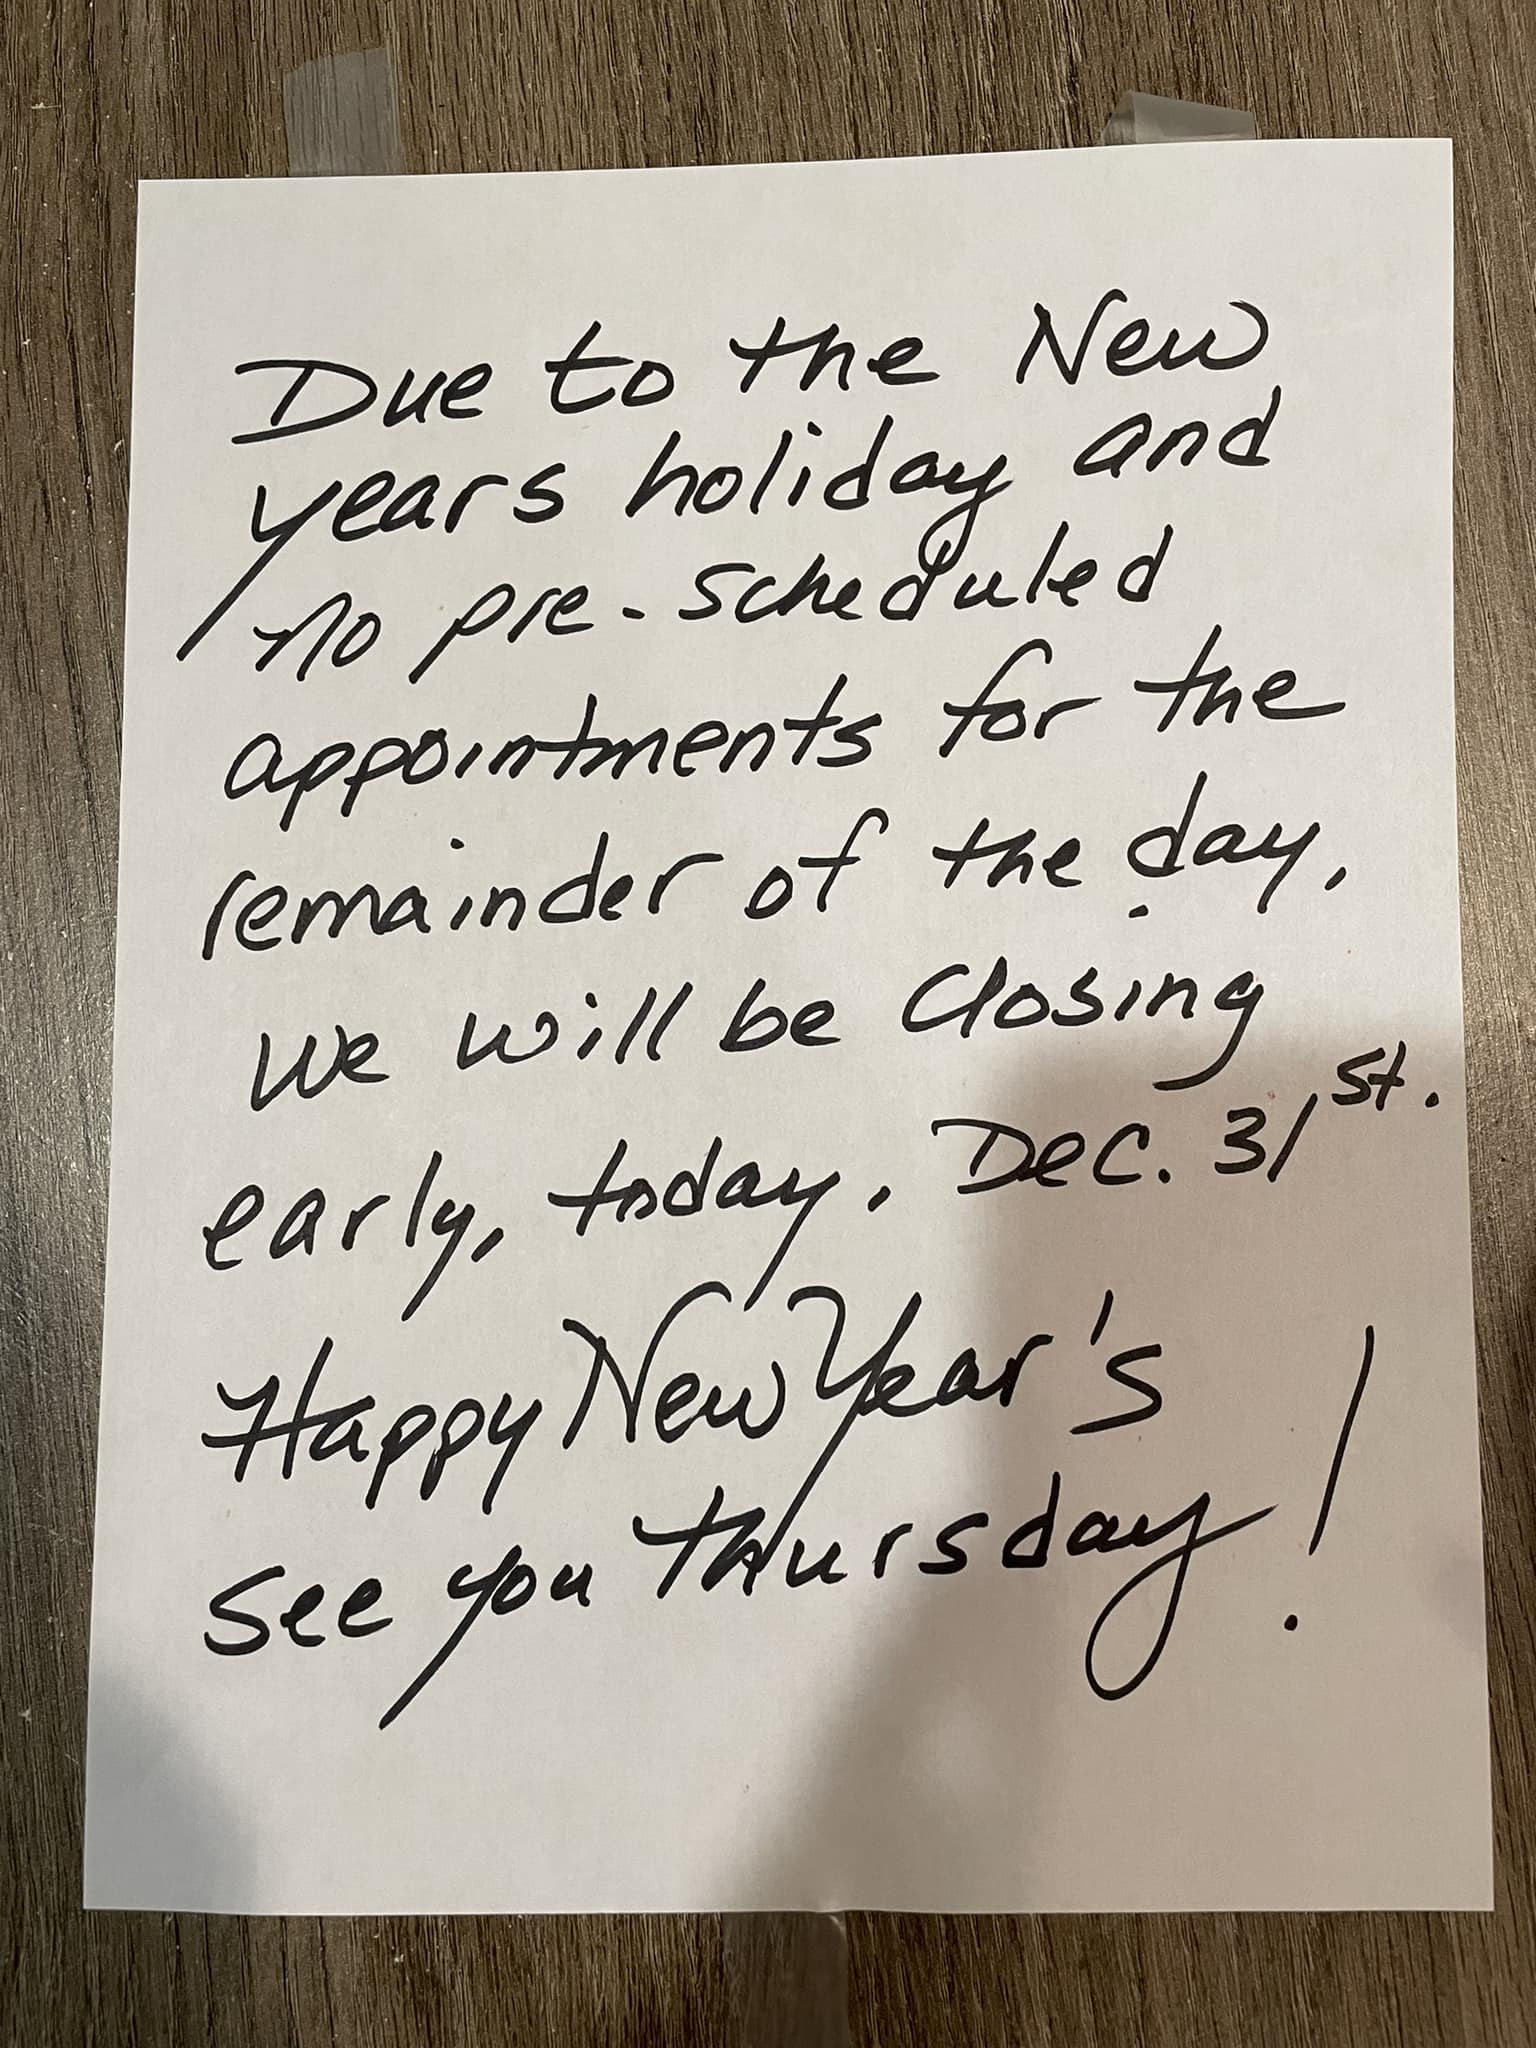 Due to the New
years holiday and
no pre-scheduled
appointments for the
remainder of the day.
We will be closing
early, today. Dec. 31st.
Happy New Year's
see you thursday!